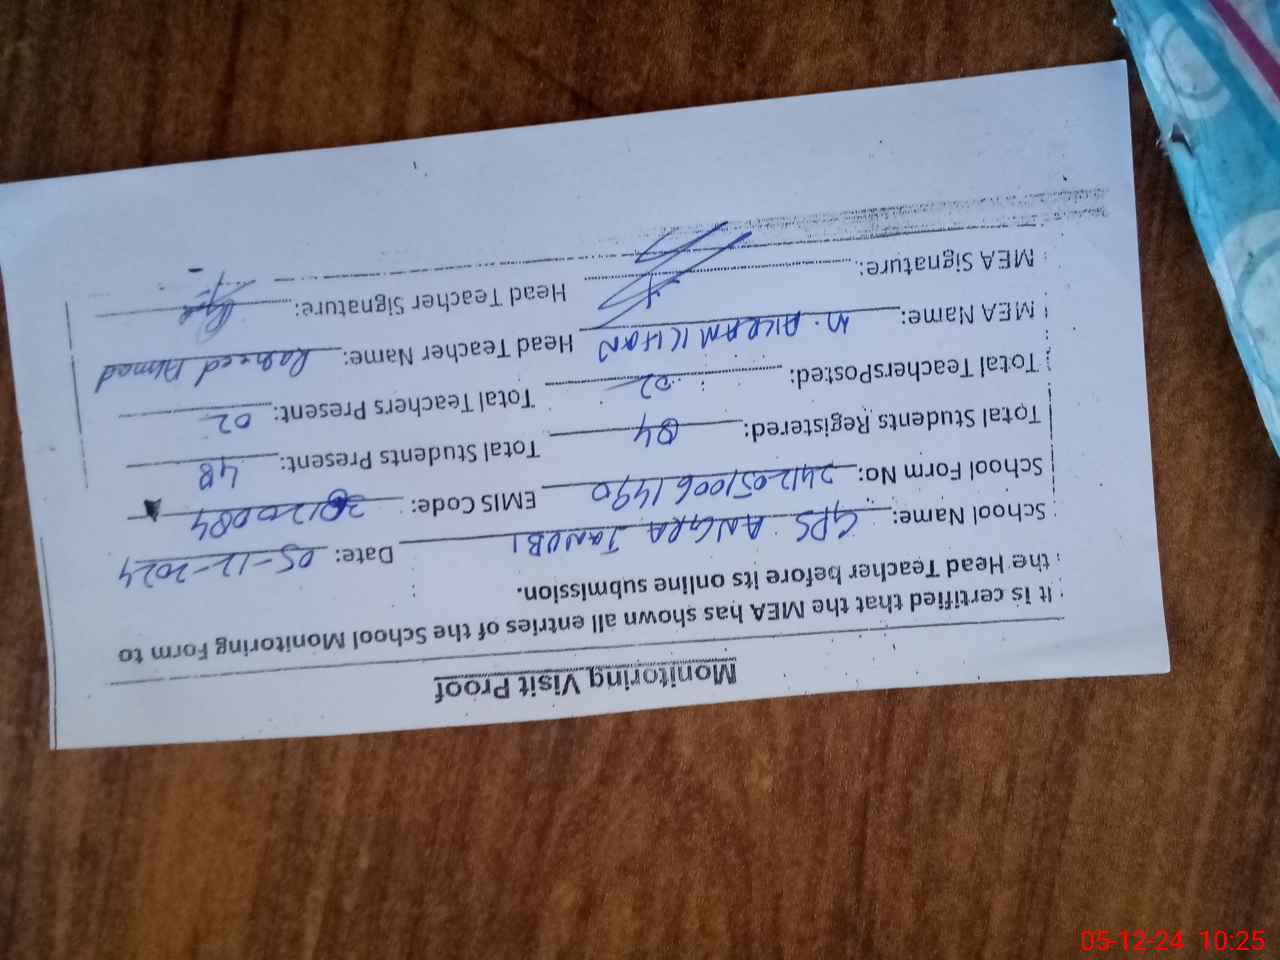 Monitoring Visit Proof
It is certified that the MEA has shown all entries of the School Monitoring Form to
the Head Teacher before its online submission.
School Name: GPS ANGRA JANUBI Date: 05-12-2024
School Form No: 24120510061490 EMIS Code: 30120084
Total Students Registered: 84 Total Students Present: 48
Total TeachersPosted: 02 Total Teachers Present: 02
MEA Name: M. AKRAM KHAN Head Teacher Name: Rasheed Ahmad
MEA Signature: Head Teacher Signature:
05-12-24 10:25